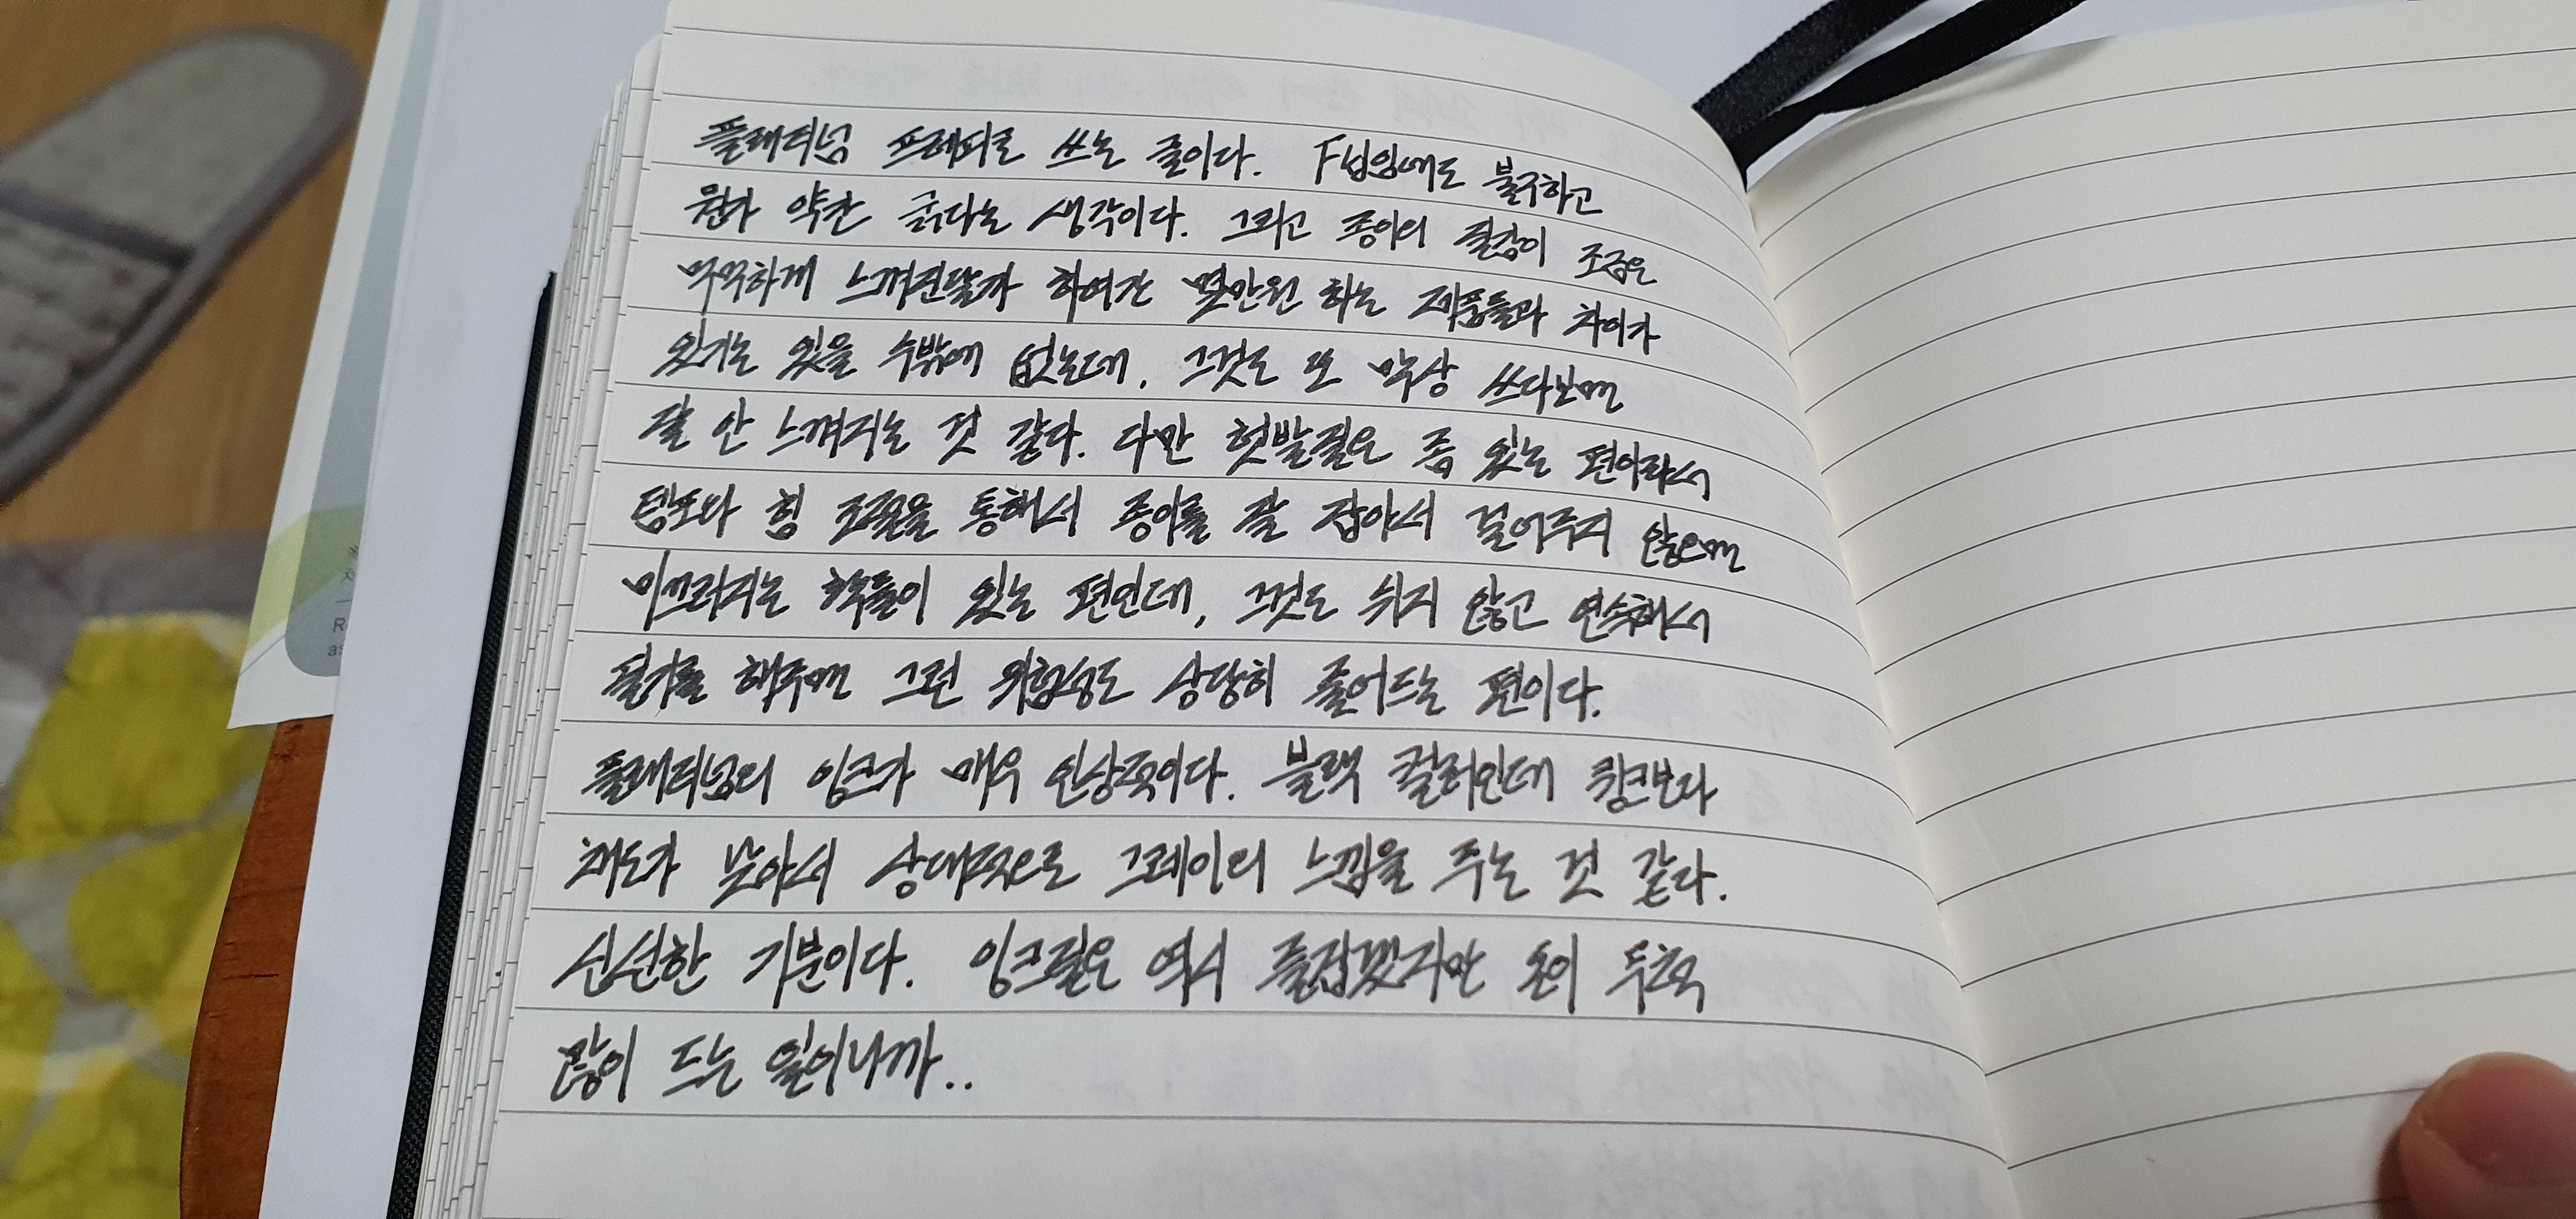 플래티넘 프레피로 쓰는 글이다. F닙임에도 불구하고
뭔가 약간 굵다는 생각이다. 그리고 종이의 질감이 조금은
먹먹하게 느껴진달까 하여간 몇만원 하는 제품들과 차이가
있기는 있을 수밖에 없는데, 그것도 또 막상 쓰다보면
잘 안 느껴지는 것 같다. 다만 헛발질은 좀 있는 편이라서
템포와 힘 조절을 통해서 종이를 잘 잡아서 걸어주지 않으면
미끄러지는 획들이 있는 편인데, 그것도 쉬지 않고 연속해서
필기를 해주면 그런 위험성도 상당히 줄어드는 편이다.
플래티넘의 잉크가 매우 인상적이다. 블랙 컬러인데 큉크보다
채도가 낮아서 상대적으로 그레이의 느낌을 주는 것 같다.
신선한 기분이다. 잉크질은 역시 즐겁겠지만 돈이 무척
많이 드는 일이니까..